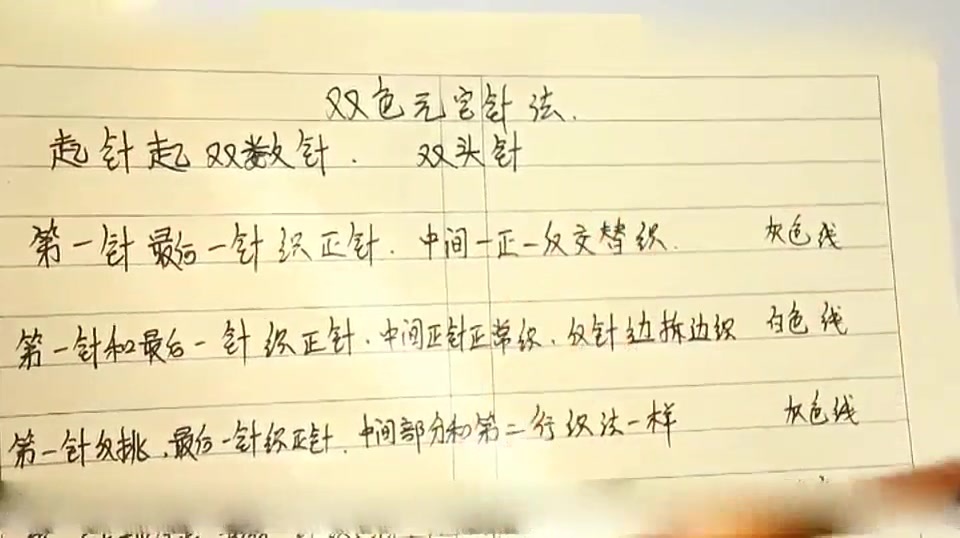 双色元宝针法.
起针起双数针. 双头针
第一针最后一针织正针.中间一正一反交替织. 灰色线
第一针和最后一针织正针.中间正针正常织.反针边拆边织 白色线
第一针反挑.最后一针织正针.中间部分和第二行织法一样 灰色线